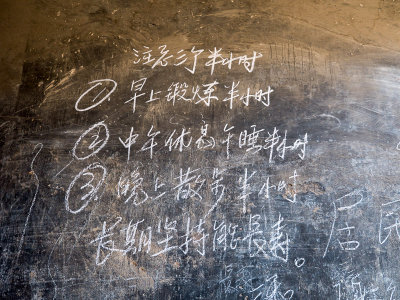 注意三个半小时
① 早上锻炼半小时
② 中午休息午睡半小时
③ 晚上散步半小时
长期坚持能长寿。
居民